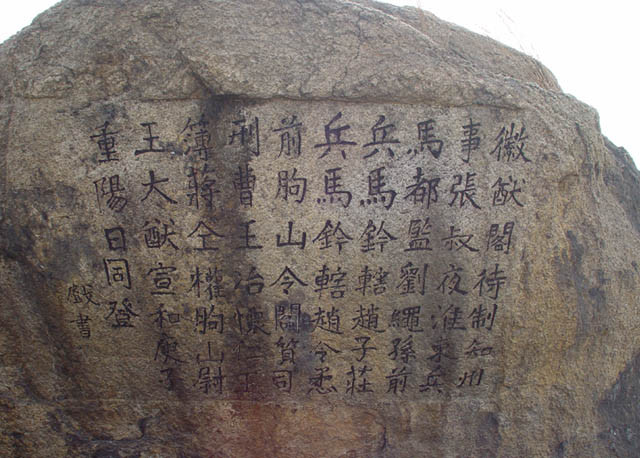 徽猷閣待制知州
事張叔夜淮東兵
馬都監劉繩孫前
兵馬鈐轄趙子莊
兵馬鈐轄趙令悉
前朐山令閻質司
刑曹王冶懷仁主
簿蔣仝權朐山尉
王大猷宣和庚子
重陽日同登
戲書